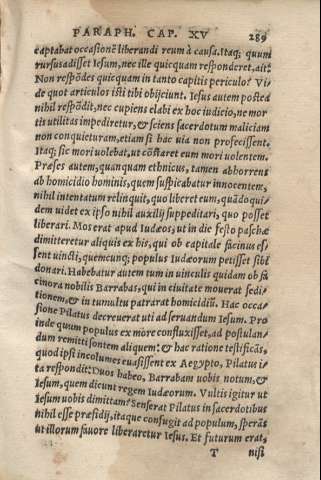 PARAPH. CAP. XV 289
captabat occasionẽ liberandi reum à causa. Itaq; quum
rursus adisset Iesum, nec ille quicquam responderet, ait:
Non respõdes quicquam in tanto capitis periculo? Vi-
de quot articulos isti tibi obijciunt. Iesus autem postea
nihil respõdit, nec cupiens elabi ex hoc iudicio, ne mor
tis utilitas impediretur, & sciens sacerdotum maliciam
non conquieturam, etiam si hac uia non profecissent.
Itaq; sic mori uolebat, ut cõstaret eum mori uolentem.
Præses autem, quanquam ethnicus, tamen abhorrens
ab homicidio hominis, quem suspicabatur innocentem,
nihil intentatum relinquit, quo liberet eum, quãdoqui-
dem uidet ex ipso nihil auxilij suppeditari, quo posset
liberari. Mos erat apud Iudæos, ut in die festo paschæ
dimitteretur aliquis ex his, qui ob capitale facinus es-
sent uincti, quemcunq; populus Iudæorum petisset sibi
donari. Habebatur autem tum in uinculis quidam ob fa
cinora nobilis Barrabas, qui in ciuitate mouerat sedi-
tionem, & in tumultu patrarat homicidiũ. Hac occa-
sione Pilatus decreuerat uti ad seruandum Iesum. Pro
inde quum populus ex more confluxisset, ad postulan-
dum remitti sontem aliquem: & hac ratione testificãs,
quod ipsi incolumes euasissent ex Aegypto, Pilatus i-
ta respondit: Duos habeo, Barrabam uobis notum, &
Iesum, quem dicunt regem Iudæorum. Vultis igitur ut
Iesum uobis dimittam? Senserat Pilatus in sacerdotibus
nihil esse præsidij, itaque consugit ad populum, sperãs
ut illorum fauore liberaretur Iesus. Et futurum erat,
T nisi